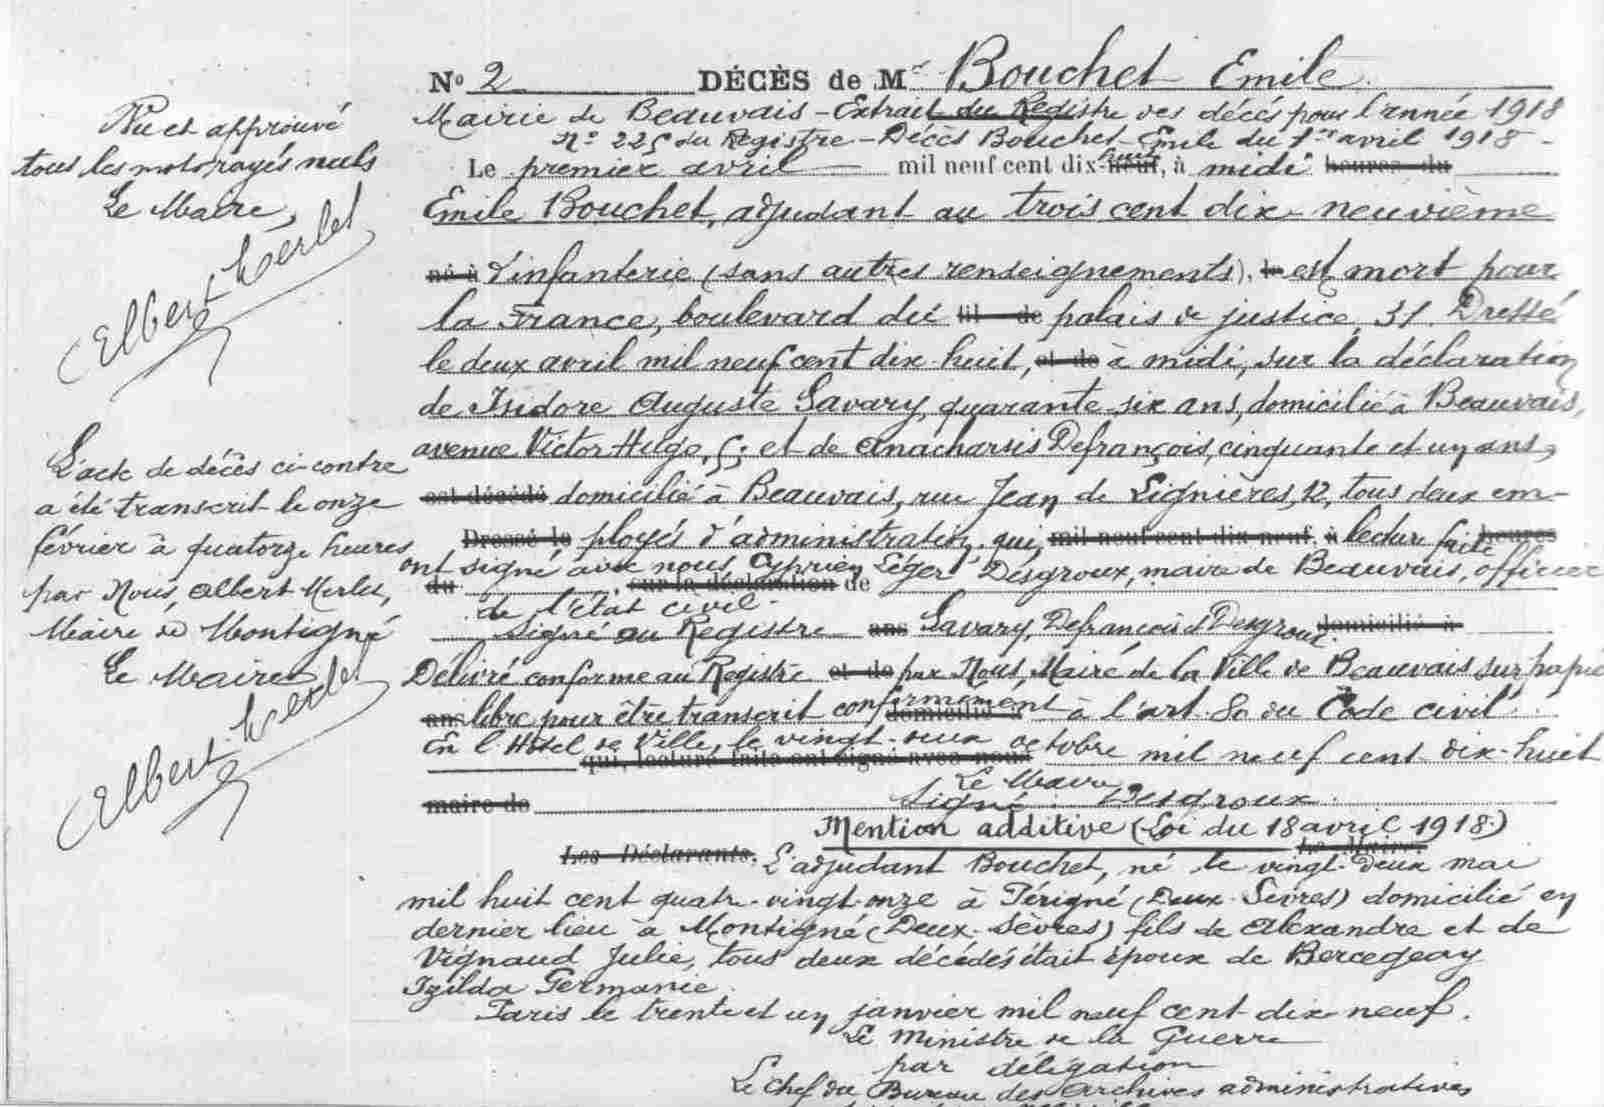 Nº 2 DÉCÈS de Mr Bouchet Emile.
Mairie de Beauvais - Extrait du Registre des décès pour l'année 1918
Nº 225 du Registre - Décès Bouchet Emile du 1er avril 1918 -
Le premier avril mil neuf cent dix-neuf huit, à midi heures du
Emile Bouchet, adjudant au trois cent dix-neuvième
né à d'infanterie (sans autres renseignements), est mort pour
la France, boulevard du fil de palais de justice, 31. Dressé
le deux avril mil neuf cent dix huit, et de à midi, sur la déclaration
de Isidore Auguste Savary, quarante six ans, domicilié à Beauvais,
avenue Victor Hugo, 5; et de Anacharsis Defrançois, cinquante et un ans,
est décédé domicilié à Beauvais, rue Jean de Lignières, 12, tous deux em-
Dressé le ployés d'administration, qui, mil neuf cent dix-neuf, à lecture faite heures
ont signé avec nous, Cyprien Léger Desgroux, maire de Beauvais, officier
du sur la déclaration de
de l'état civil.
Signé au Registre ans Savary, Defrançois et Desgroux. domicilié à
Délivré conforme au Registre et de par Nous, Maire de la Ville de Beauvais sur papier
ans libre pour être transcrit conformément domicilié à à l'art. 80 du Code civil.
En l'Hôtel de Ville, le vingt-deux octobre mil neuf cent dix-huit
qui, lecture faite ont signé avec nous
Le Maire
maire de Signé: Desgroux.
Mention additive (Loi du 18 avril 1918.)
Les Déclarants, Le Maire,
L'adjudant Bouchet, né le vingt-deux mai
mil huit cent quatre-vingt-onze à Périgné (Deux-Sèvres) domicilié en
dernier lieu à Montigné (Deux-Sèvres) fils de Alexandre et de
Vignaud Julie, tous deux décédés était époux de Bercegeay
Izilda Germanie.
Paris le trente et un janvier mil neuf cent dix-neuf.
Le Ministre de la Guerre
par délégation
Le Chef du Bureau des Archives administratives
Vu et approuvé
tous les mots rayés nuls
Le Maire,
Albert Merlet
L'acte de décès ci-contre
a été transcrit le onze
février à quatorze heures
par Nous, Albert Merlet,
Maire de Montigné
Le Maire
Albert Merlet